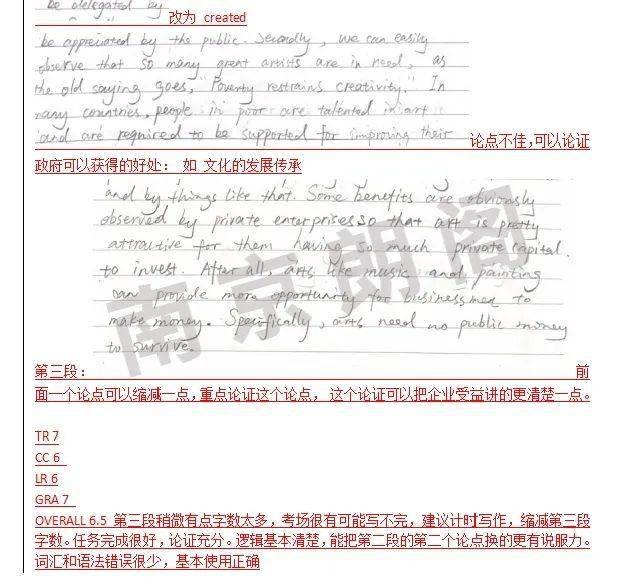 be delegated by
改为 created
be appreciated by the public. Secondly, we can easily
observe that so many great artists are in need, as
the old saying goes, "Poverty restrains creativity." In
many countries, people in poor are talented in art
and are required to be supported for improving their
论点不佳,可以论证
政府可以获得的好处： 如 文化的发展传承
and by things like that. Some benefits are obviously
observed by private enterprises so that art is pretty
attractive for them having so much private capital
to invest. After all, arts like music and painting
can provide more opportunity for businessmen to
make money. Specifically, arts need no public money
to survive.
南京朗阁
第三段： 前
面一个论点可以缩减一点，重点论证这个论点， 这个论证可以把企业受益讲的更清楚一点。
TR 7
CC 6
LR 6
GRA 7
OVERALL 6.5 第三段稍微有点字数太多，考场很有可能写不完，建议计时写作，缩减第三段
字数。任务完成很好，论证充分。逻辑基本清楚，能把第二段的第二个论点换的更有说服力。
词汇和语法错误很少，基本使用正确